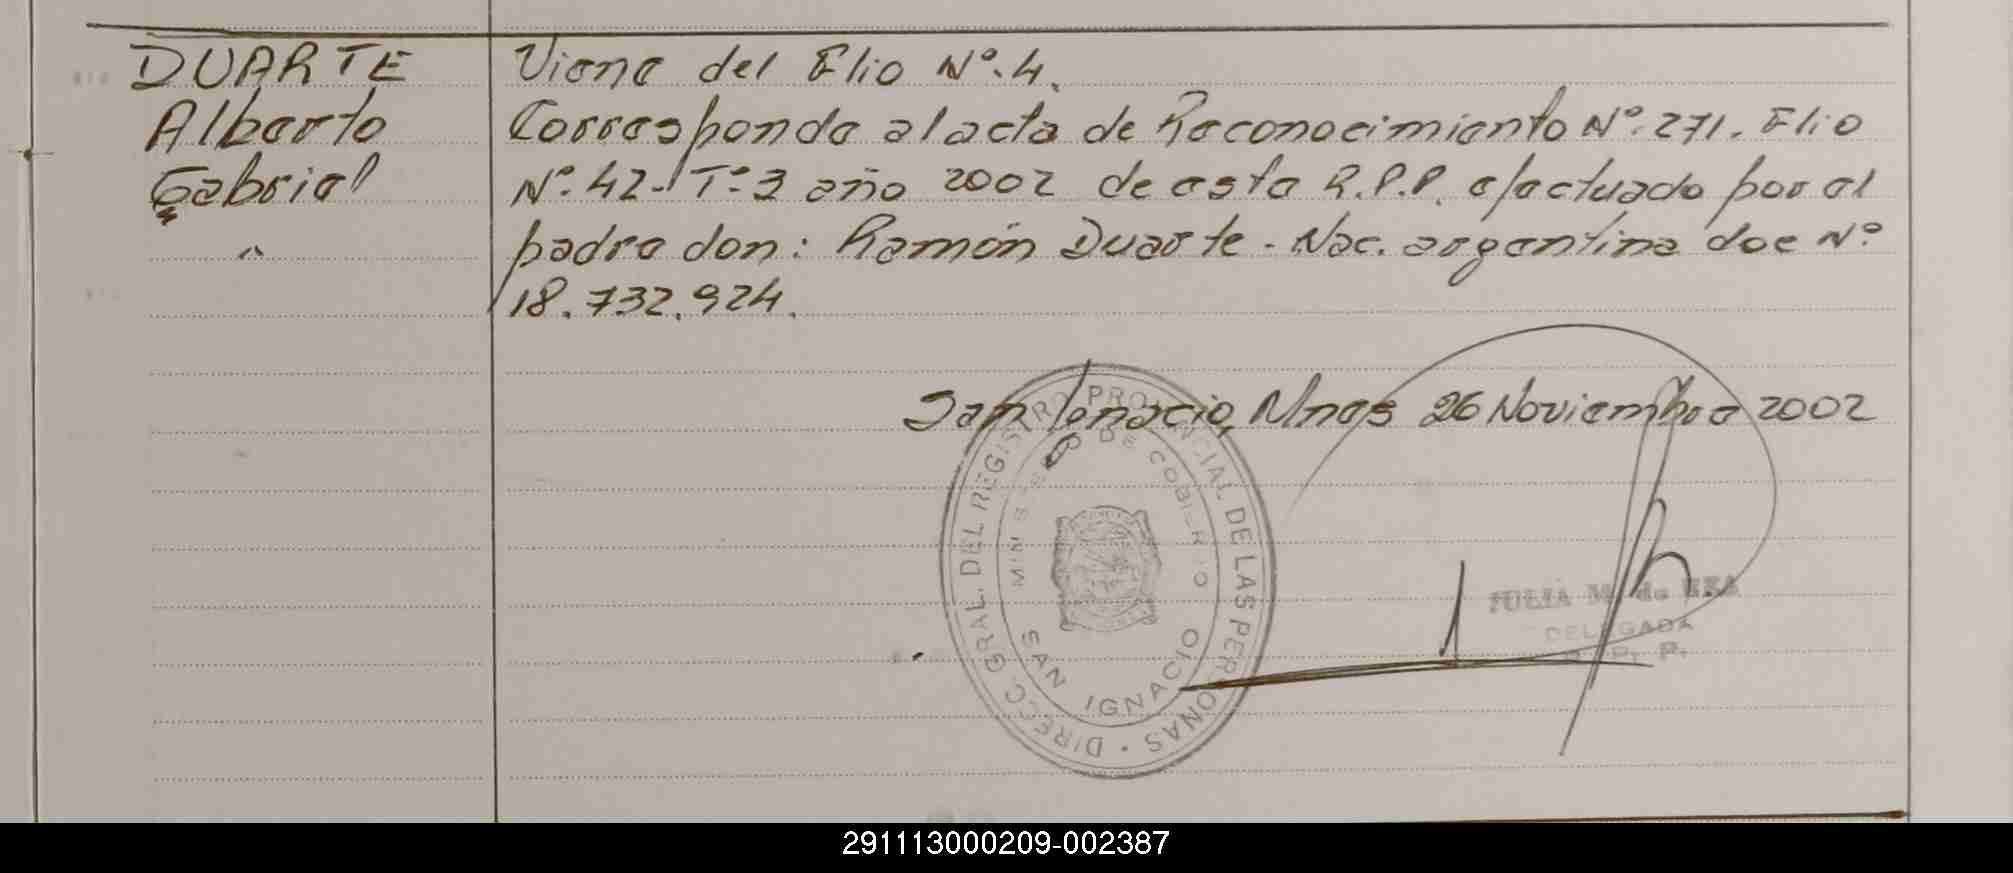 DUARTE
Alberto
Gabriel
"
Viene del Flio Nº.4.
Corresponde al acta de Reconocimiento Nº.271. Flio
Nº.42-Tº-3 año 2002 de esta R.P.P. efectuado por el
padre don: Ramón Duarte - Nac. argentina doc Nº
18.732.924.
San Ignacio, Mnes 26 Noviembre 2002
DIRECC. GRAL. DEL REGISTRO PROVINCIAL DE LAS PERSONAS
MINISTERIO DE GOBIERNO
SAN IGNACIO
JULIA M. de
DELEGADA
R. P. P.
291113000209-002387